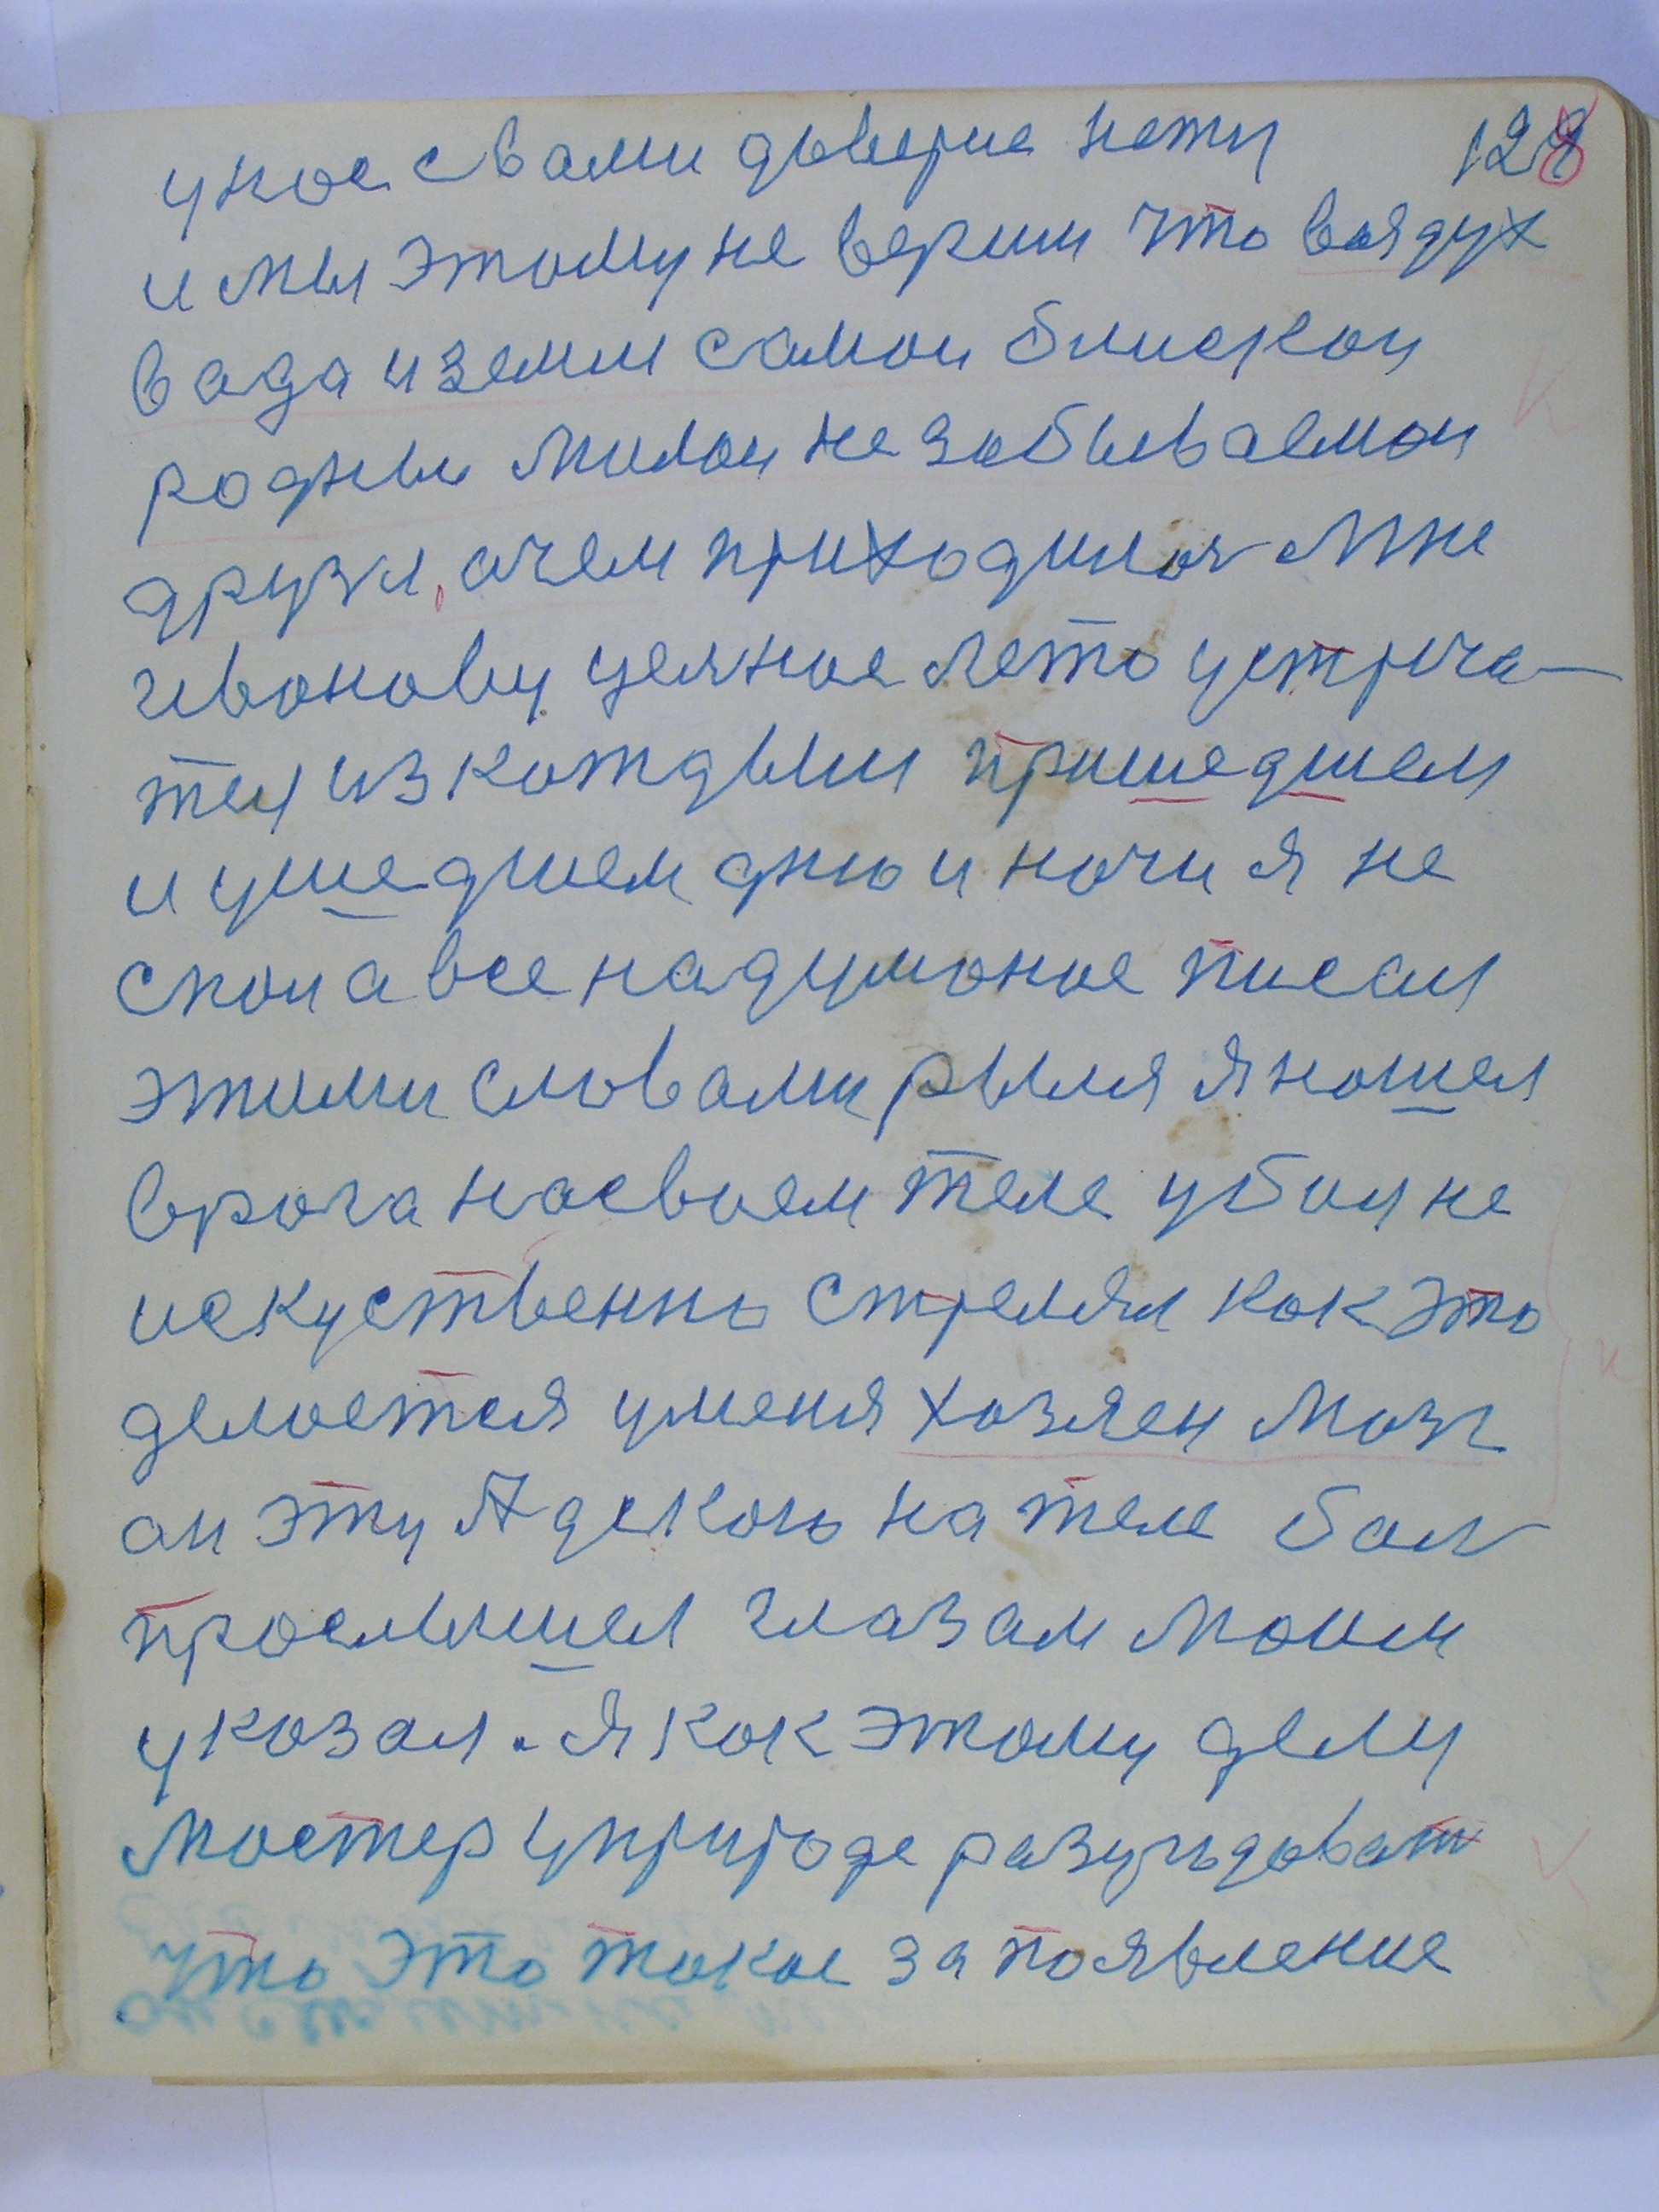 унос свами дыверие нету 128
и мы этому не верим что воздух
вада и земля самои блискои
родныи милои незабываемои
друзя, очем приходилоя мне
чвонову целяное лето устрича-
тсу из кождыми пришедшем
и ушедшем дню и ночи я не
спол а все надумоное писал
этими словами рыля я ношел
врога насвоем теле убил не
искуственно стрелял как это
делоется уменя хозяен мозг
он эту Адскою на теле бол
прослышел глазам моим
укозал. я как этому делу
мостер уприроде разуыдоват
что это такое за появление